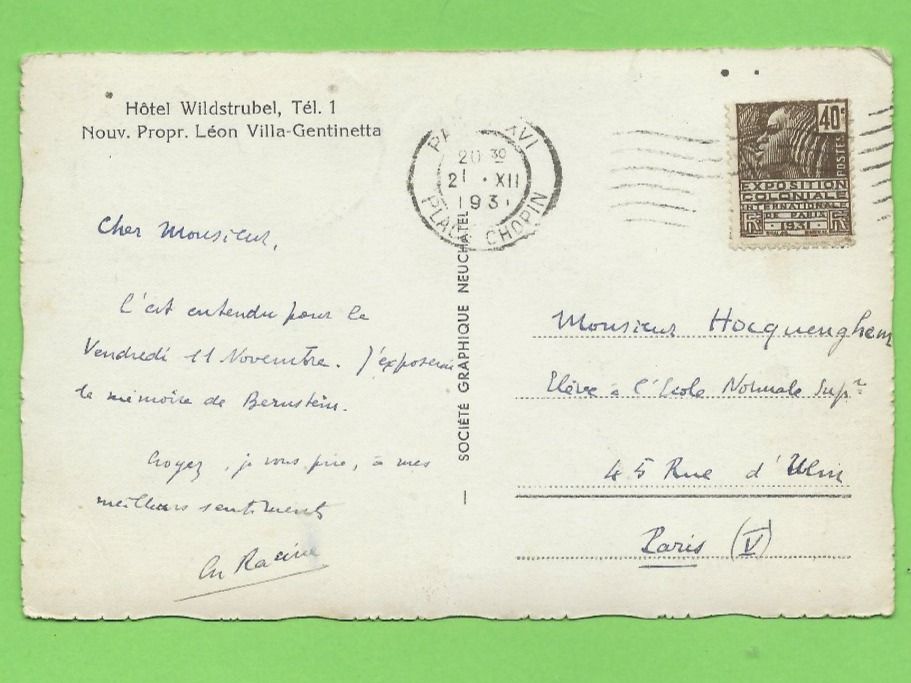 Hôtel Wildstrubel, Tél. 1
Nouv. Propr. Léon Villa-Gentinetta
XVI
20 30
21 · XII
193
PLACE CHOPIN
40c
POSTES
EXPOSITION
COLONIALE
INTERNATIONALE
DE PARIS
1931
SOCIÉTÉ GRAPHIQUE NEUCHÂTEL
Cher Monsieur,
C'est entendu pour le
Vendredi 11 Novembre. J'exposerai
le mémoire de Bernstein.
Croyez, je vous prie, à mes
meilleurs sentiments
Ch Racine
Monsieur Hocquenghem
Elève à l'Ecole Normale Supre
45 Rue d'Ulm
Paris (V)